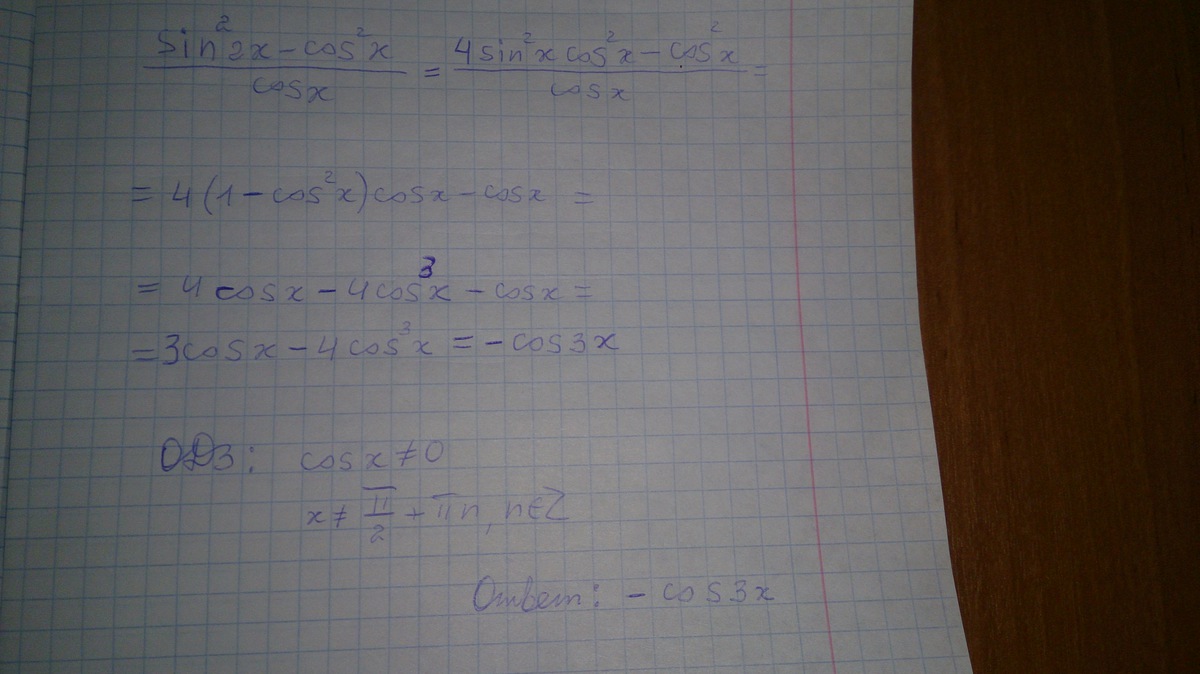 (sin²2x - cos²x)/cosx = (4sin²x cos²x - cos²x)/cosx =
= 4(1 - cos²x)cosx - cosx =
= 4cosx - 4cos³x - cosx =
= 3cosx - 4cos³x = - cos3x
ОДЗ: cosx ≠ 0
x ≠ π/2 + πn, n∈Z
Ответ: - cos3x